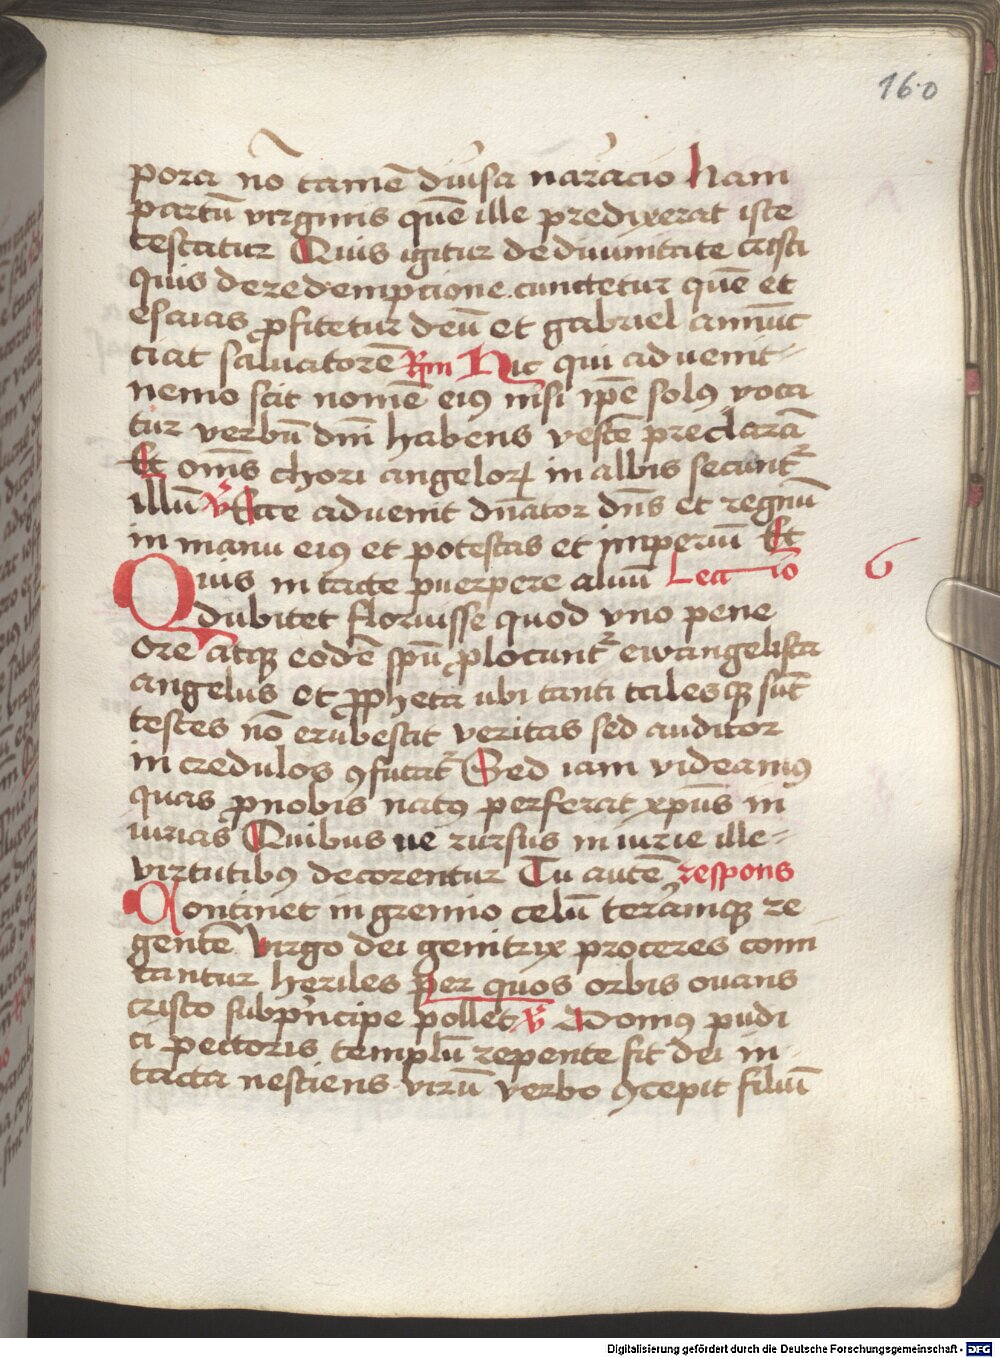 160
pora nō tamē diu̓sa nar̓acio Nam
partū virginis quē ille predixerat iste
testatur Quis igitur de diuinitate cristi
quis de redempcione cunctetur quē et
esaias ꝓfitetur deū et gabriel annūc
ciat saluatorē Rm̄ Hic qui aduenit
nemo scit nomē eiꝰ nisi ip̄e solꝰ voca
tur verbū dm̄ habens vestē preclarā
Et om̄s chori angeloꝝ in albis secunt᷑
illū v̓ Ecce aduenit dn̄ator dn̄s et regnū
in manu eiꝰ et potestas et imperiū Et
Quis in tacte puerpere aluū Lectio 6
dubitet floruisse quod vno pene
ore atqꝫ eodē spū ꝓlocunt᷑ ewangelista
angelus et ꝓpheta ubi tanti talesqꝫ sūt
testes nō erubescit veritas sed auditor
in credulos ꝯfutat᷑ Sed iam videamꝰ
quas ꝓ nobis natꝰ perferat xpūs in
iurias Quibus ue rursus in iurie ille
virtutibꝰ decorentur Tu autē respons
Continet in gremio celū ter̓amqꝫ re
gentē virgo dei genitrix proceres comi
tantur heriles per quos orbis ouans
cristo subp̓ncipe pollet v̓ Domꝰ pudi
ci pectoris templū repente fit dei in
tacta nesciens virū verbo ꝯcepit filiū
Digitalisierung gefördert durch die Deutsche Forschungsgemeinschaft - DFG